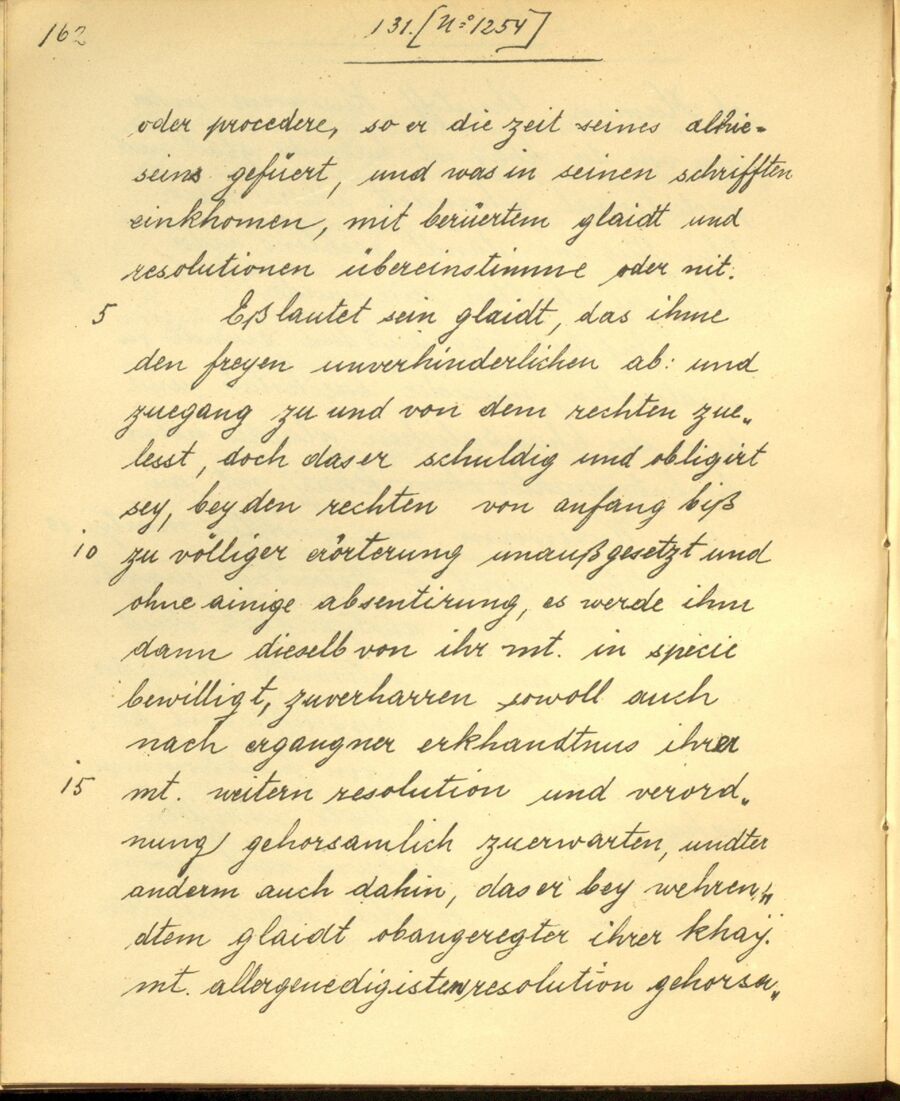 162
131. [N:o 1254]
oder procedere, so er die zeit seines alhie=
seins gefüert, und was in seinen schrifften
einkhomen, mit berüertem glaidt und
resolutionen übereinstimme oder nit.
5 Eß lautet sein glaidt, das ihme
den freyen unverhinderlichen ab: und
zuegang zu und von dem rechten zue„
lesst, doch das er schuldig und obligirt
sey, bey den rechten von anfang biß
10 zu völliger erörterung unaußgesetzt und
ohne ainige absentirung, es werde ihm
dann dieselb von ihr mt. in specie
bewilligt, zuverharren sowoll auch
nach ergangner erkhandtnus ihrer
15 mt. weitern resolution und verord„
nung gehorsamlich zuerwarten, undter
anderm auch dahin, das er bey wehren„
dtem glaidt obangeregter ihrer khaÿ.
mt. allergenedigisten resolution gehorsa„